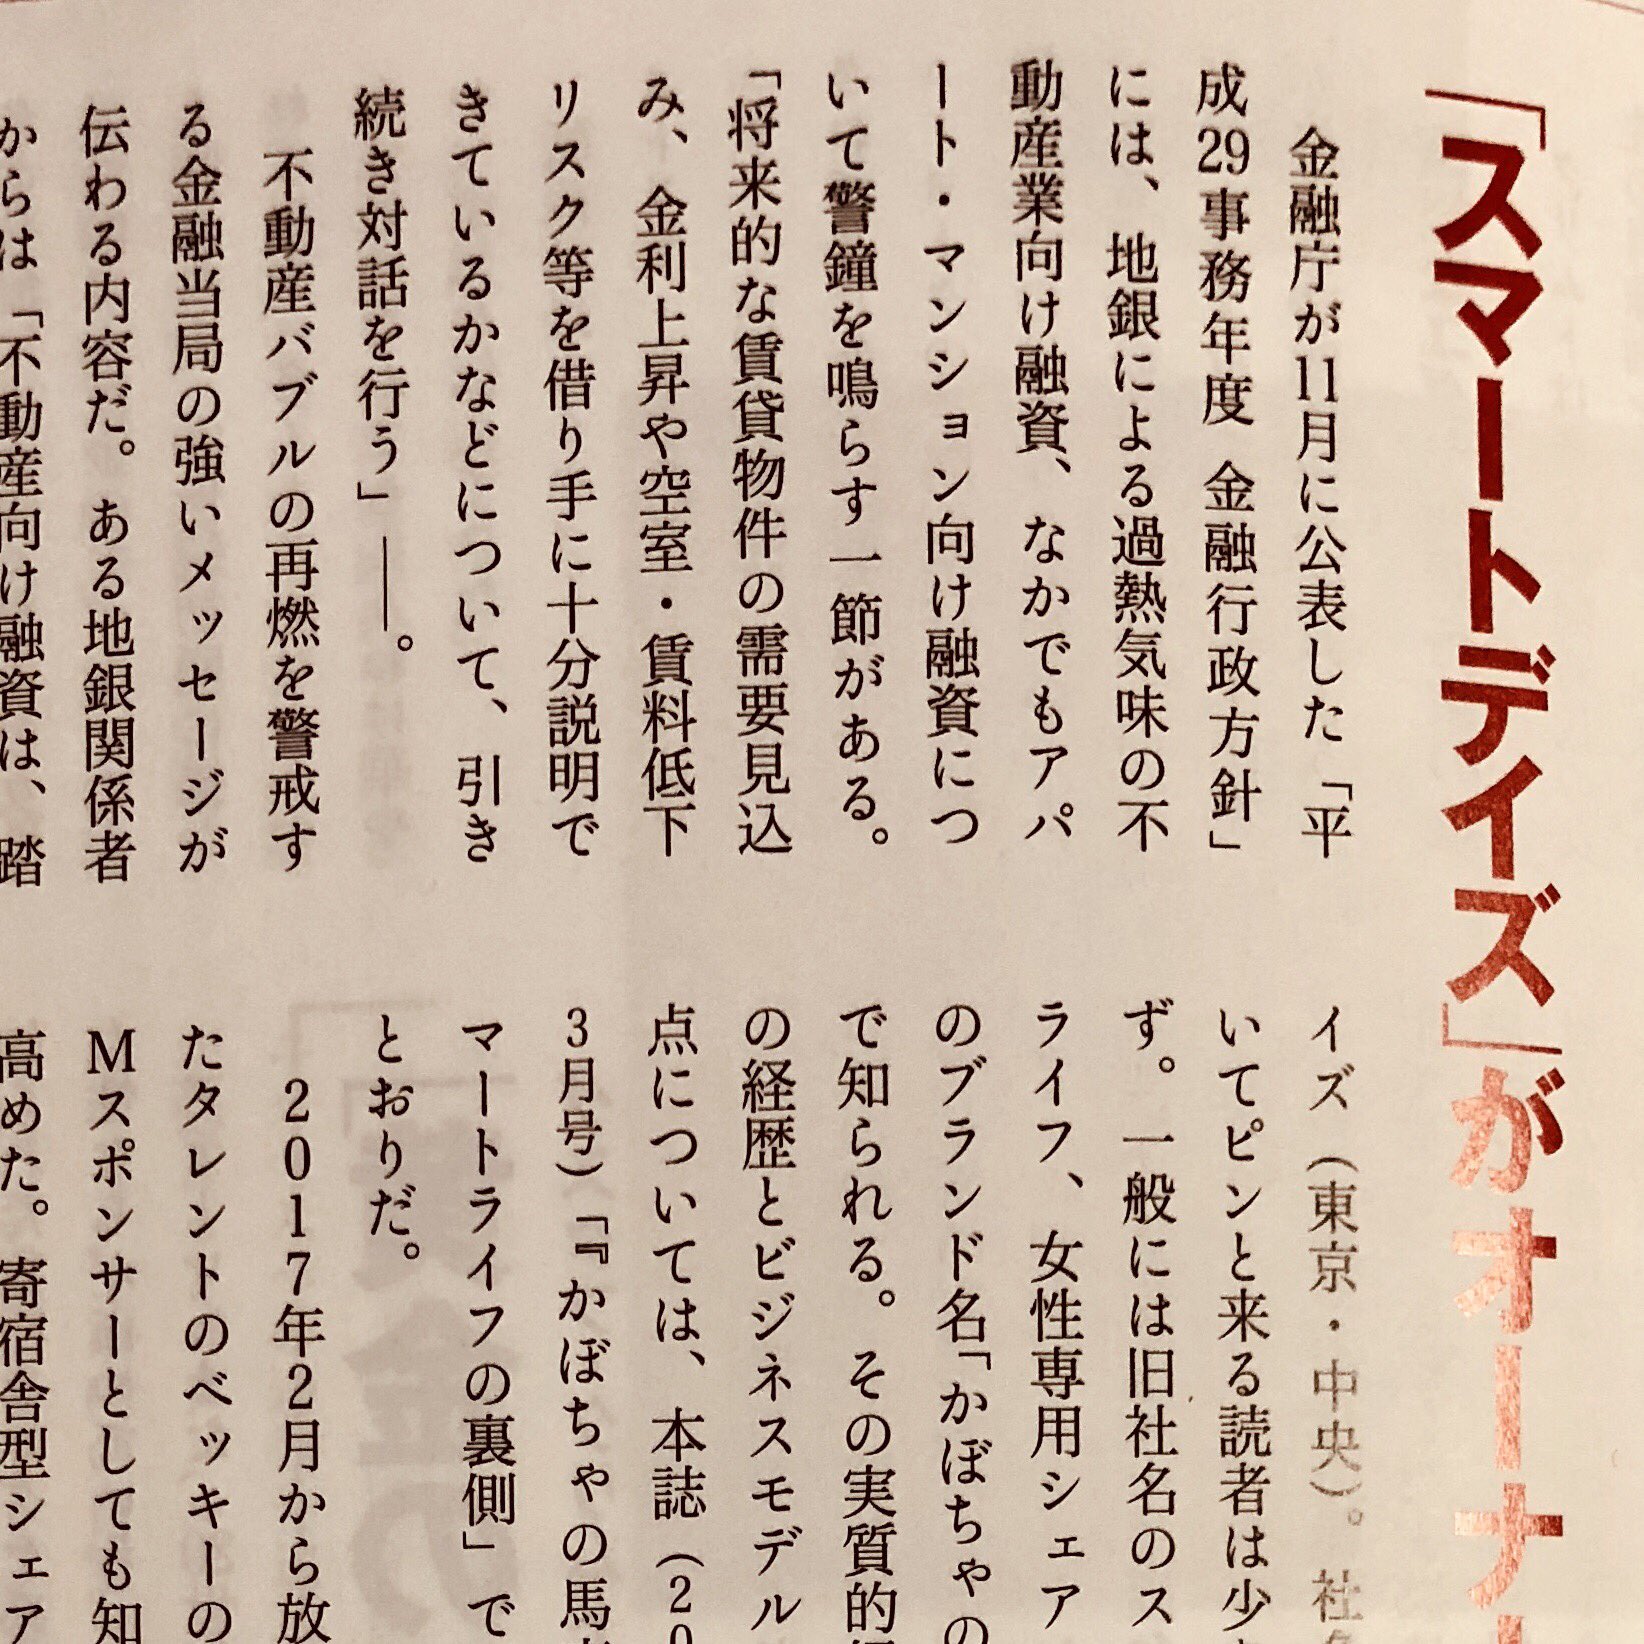 「スマートデイズ」がオーナ
金融庁が11月に公表した「平
成29事務年度 金融行政方針」
には、地銀による過熱気味の不
動産業向け融資、なかでもアパ
ート・マンション向け融資につ
いて警鐘を鳴らす一節がある。
「将来的な賃貸物件の需要見込
み、金利上昇や空室・賃料低下
リスク等を借り手に十分説明で
きているかなどについて、引き
続き対話を行う」――。
不動産バブルの再燃を警戒す
る金融当局の強いメッセージが
伝わる内容だ。ある地銀関係者
からは「不動産向け融資は、踏
イズ(東京・中央)。社
いてピンと来る読者は少
ず。一般には旧社名のス
ライフ、女性専用シェア
のブランド名「かぼちゃの
で知られる。その実質的
の経歴とビジネスモデル
点については、本誌(20
3月号)「『かぼちゃの馬
マートライフの裏側」で
とおりだ。
2017年2月から放
たタレントのベッキーの
Mスポンサーとしても知
高めた。寄宿舎型シェア